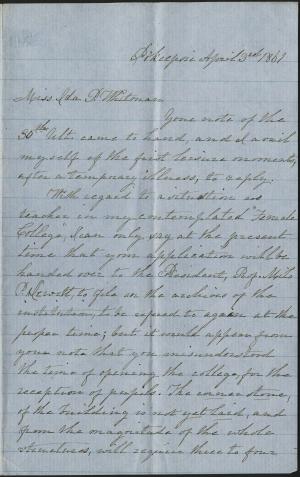 Po'keepsie April 3rd 1861
Miss Ida P. Whitman
Your note of the
30th Ult. came to hand, and I avail
myself of the first leisure moment,
after a temporary illness, to reply.
With regard to a situation as
teacher in my contemplated "Female
College", I can only say at the present
time that your application will be
handed over to the President, Prof. Milo
P. Jewett, to file in the archives of the
institution, to be refered to again at the
proper time; but it would appear from
your note that you misunderstood
the time of opening the college, for the
reception of pupils. The corner stone,
of the building is not yet laid, and
from the magnitude of the whole
structure, will require three to four